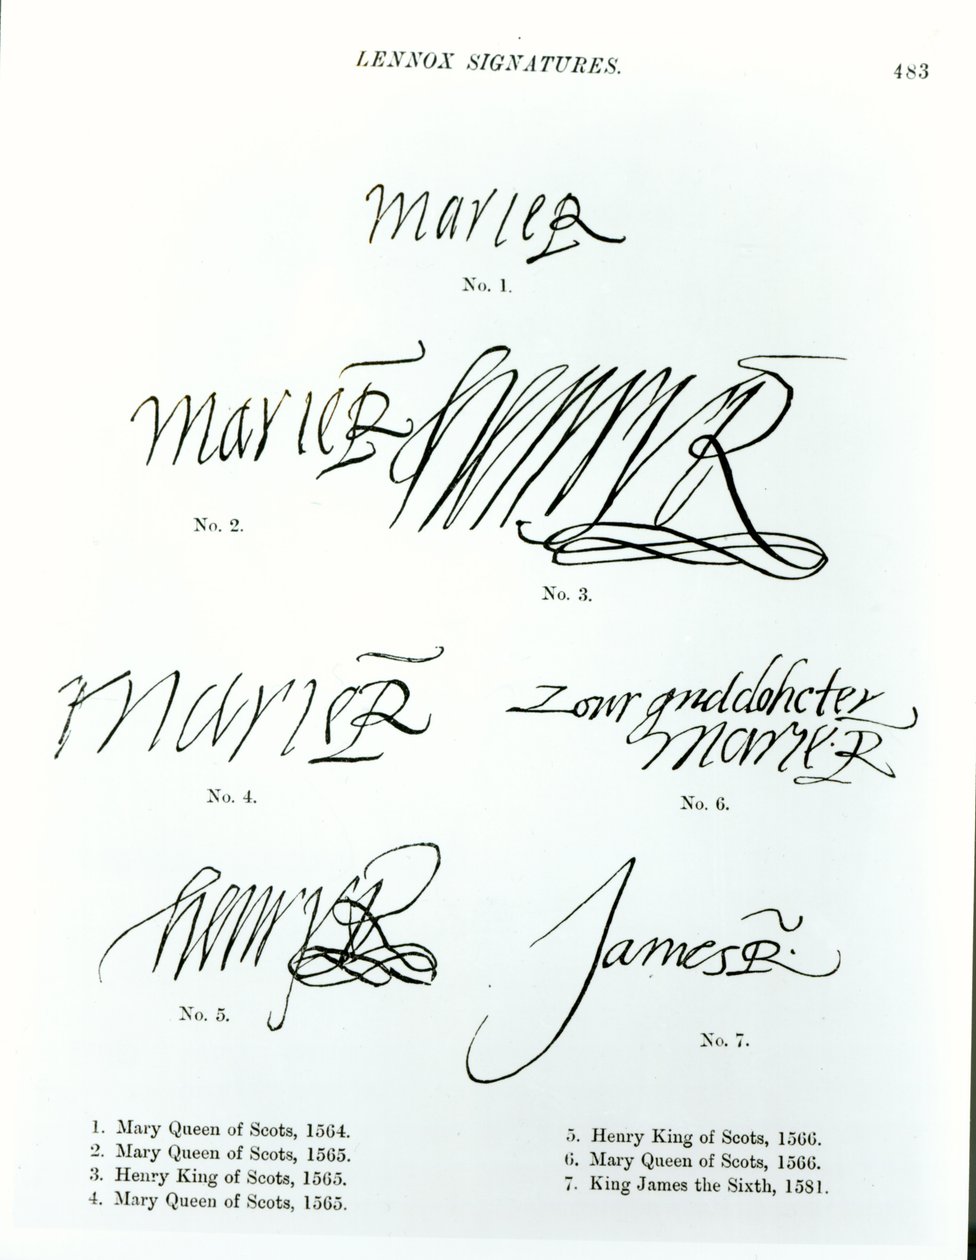 LENNOX SIGNATURES.
483
MarieR
No. 1.
MarieR
HenryR
No. 2.
No. 3.
MarieR
Zour guddohcter
Marie·R
No. 4.
No. 6.
HenryR
JamesR·
No. 5.
No. 7.
1. Mary Queen of Scots, 1564.
2. Mary Queen of Scots, 1565.
3. Henry King of Scots, 1565.
4. Mary Queen of Scots, 1565.
5. Henry King of Scots, 1566.
6. Mary Queen of Scots, 1566.
7. King James the Sixth, 1581.